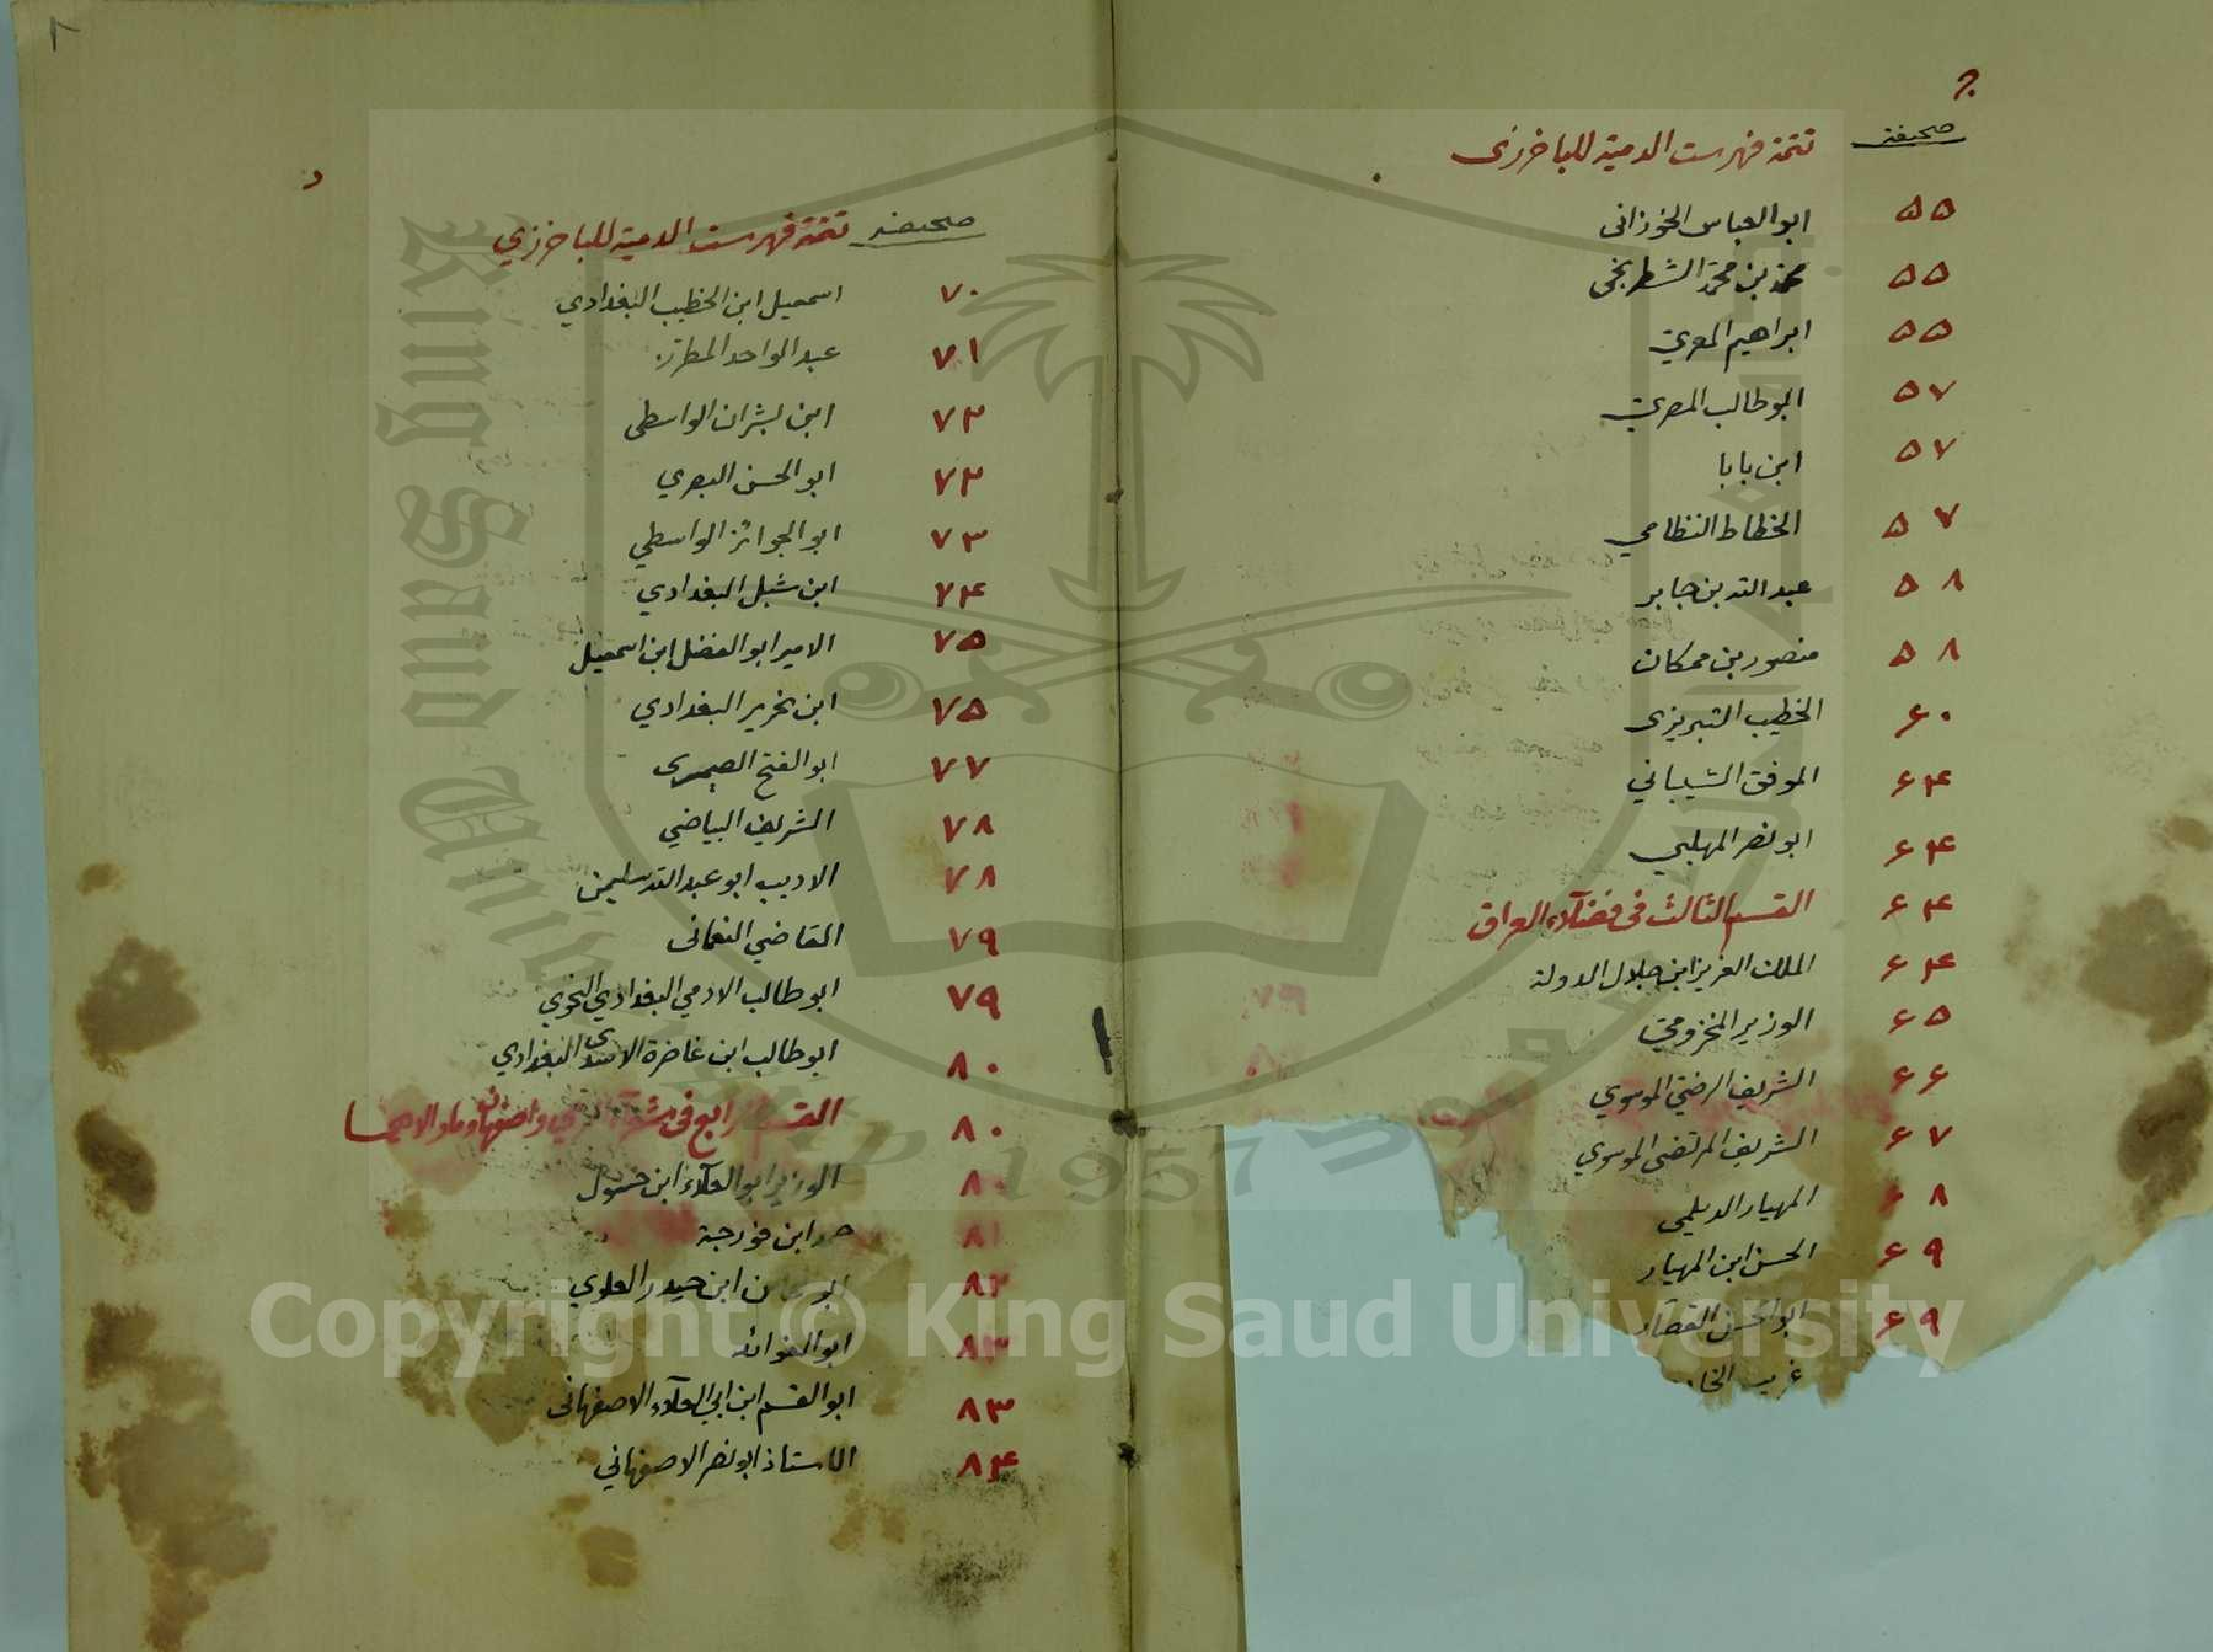 صحيفة تتمة فهرست الدمية للباخرزى
٥٥ ابو العباس الخوزانى
٥٥ محمد بن محمد الشطرنجى
٥٥ ابراهيم المعري
٥٧ ابو طالب المصري
٥٧ ابن بابا
٥٧ الخطاط النظامي
٥٨ عبد الله بن جابر
٥٨ منصور بن ممكان
۶۰ الخطيب التبريزى
۶۴ الموفق الشيباني
۶۴ ابو نصر المهلبي
۶۴ القسم الثالث فى فضلآء العراق
۶۴ الملك العزيز ابن جلال الدولة
۶٥ الوزير المخزومي
۶۶ الشريف الرضي الموسوي
۶٧ الشريف المرتضى الموسوي
۶٨ المهيار الديلمي
۶٩ الحسن ابن المهيار
۶٩ ابو الحسن القصار
غريب
٨
د
صحيفة تتمة فهرست الدمية للباخرزي
٧٠ اسمعيل ابن الخطيب البغدادي
٧١ عبد الواحد المطرز
٧٢ ابن بشران الواسطى
٧٢ ابو الحسن البصري
٧٣ ابو الجوائز الواسطي
٧۴ ابن شبل البغدادي
٧٥ الامير ابو الفضل ابن اسمعيل
٧٥ ابن نحرير البغدادي
٧٧ ابو الفتح الصيمرى
٧٨ الشريف البياضي
٧٨ الاديب ابو عبد الله سليمن
٧٩ القاضي النعمانى
٧٩ ابو طالب الادمي البغدادي النحوي
٨٠ ابو طالب ابن غاضرة الاسدى البغدادي
٨٠ القسم الرابع فى
٨٠ الوزير ابو العلآء ابن حسول
٨١ ابن فورجة
٨٢ ابن حيدر العلوي
٨٣ ابو الفوائد
٨٣ ابو القسم ابن ابي العلآء الاصفهانى
٨۴ الاستاذ ابو نصر الاصفهاني
King Saud University
1957
Copyright © King Saud University